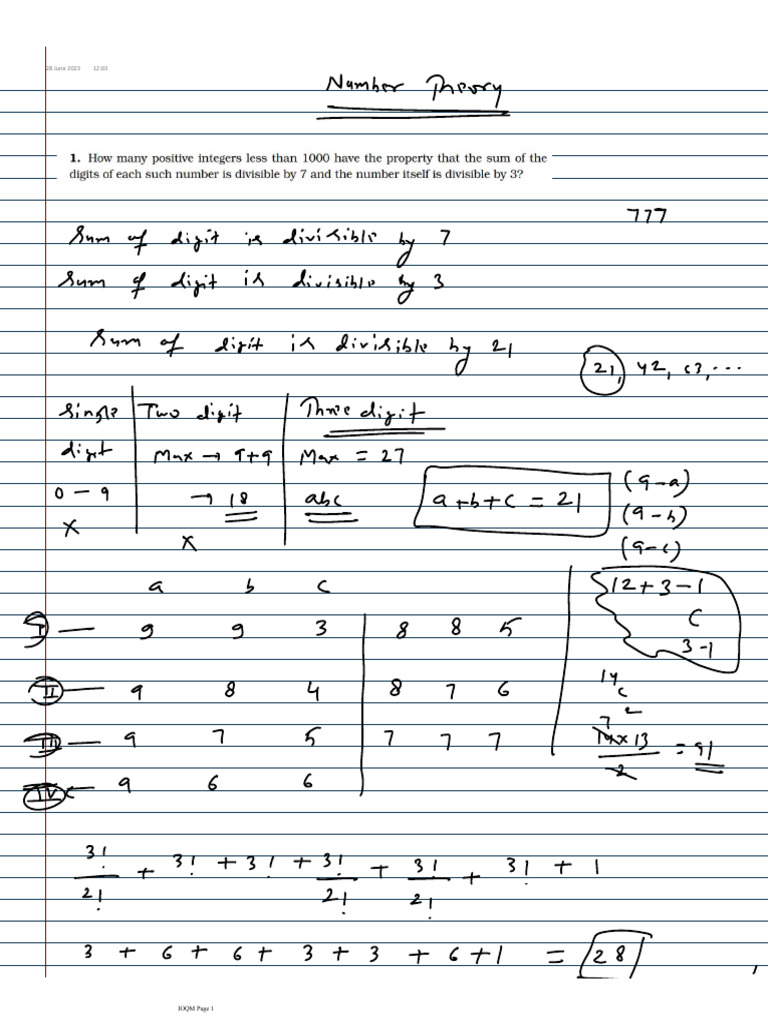 28 June 2023 12:03
Number Theory
1. How many positive integers less than 1000 have the property that the sum of the
digits of each such number is divisible by 7 and the number itself is divisible by 3?
777
Sum of digit is divisible by 7
Sum of digit is divisible by 3
Sum of digit is divisible by 21
21, 42, 63, ...
Single | Two digit | Three digit
digit | Max → 9+9 | Max = 27
0 - 9 | → 18 | abc a+b+c = 21
X | X
(9-a)
(9-b)
(9-c)
a b c
I — 9 9 3 | 8 8 5
II — 9 8 4 | 8 7 6
III — 9 7 5 | 7 7 7
IV — 9 6 6
12+3-1
C
3-1
14
C
2
7
14×13
2
= 91
3!/2! + 3! + 3! + 3!/2! + 3!/2! + 3! + 1
3 + 6 + 6 + 3 + 3 + 6 + 1 = 28
IOQM Page 1